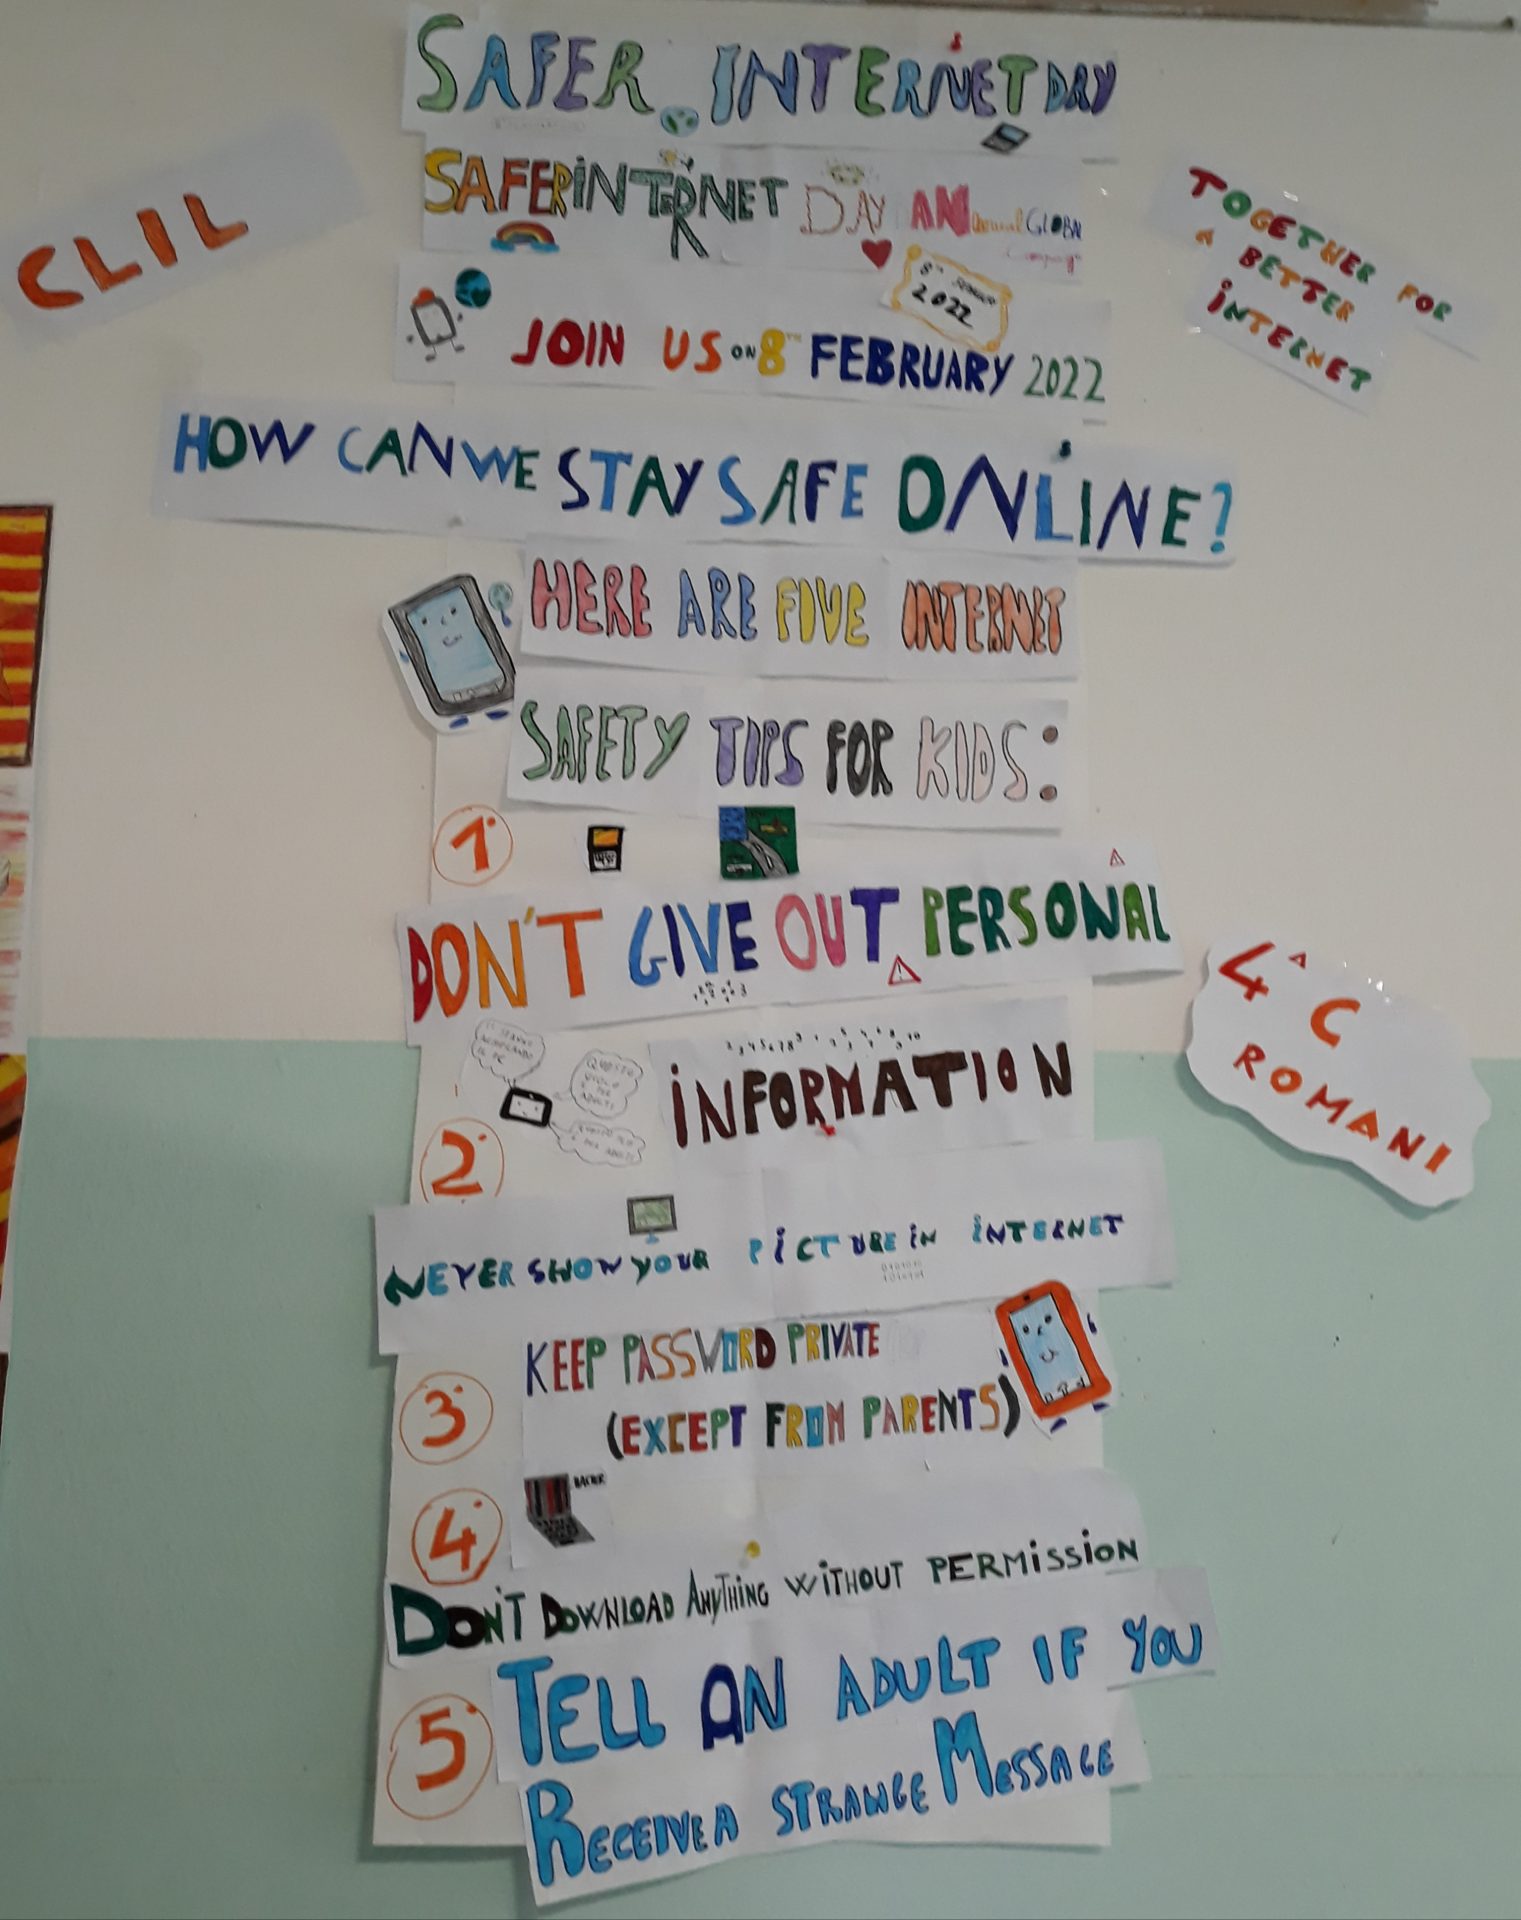 SAFER INTERNET DAY
SAFER iNTERNET DAY AN Annual GLOBAL Campaign
8TH
2022
JOIN US ON 8TH FEBRUARY 2022
CLIL
TOGETHER FOR
A BETTER
iNTERNET
HOW CAN WE STAY SAFE ONLINE?
HERE ARE FIVE INTERNET
SAFETY TIPS FOR KIDS:
1
DON'T GIVE OUT PERSONAL
iNFORMATION
4^A C
ROMANI
2
QUESTO
GIOCO
È PER
ADULTI
NEVER SHOW YOUR PiCTURE iN iNTERNET
3
KEEP PASSWORD PRIVATE
(EXCEPT FROM PARENTS)
4
HACKER
DON'T DOWNLOAD ANYTHING WiTHOUT PERMiSSiON
5
TELL AN ADULT IF YOU
RECEIVE A STRANGE MESSAGE